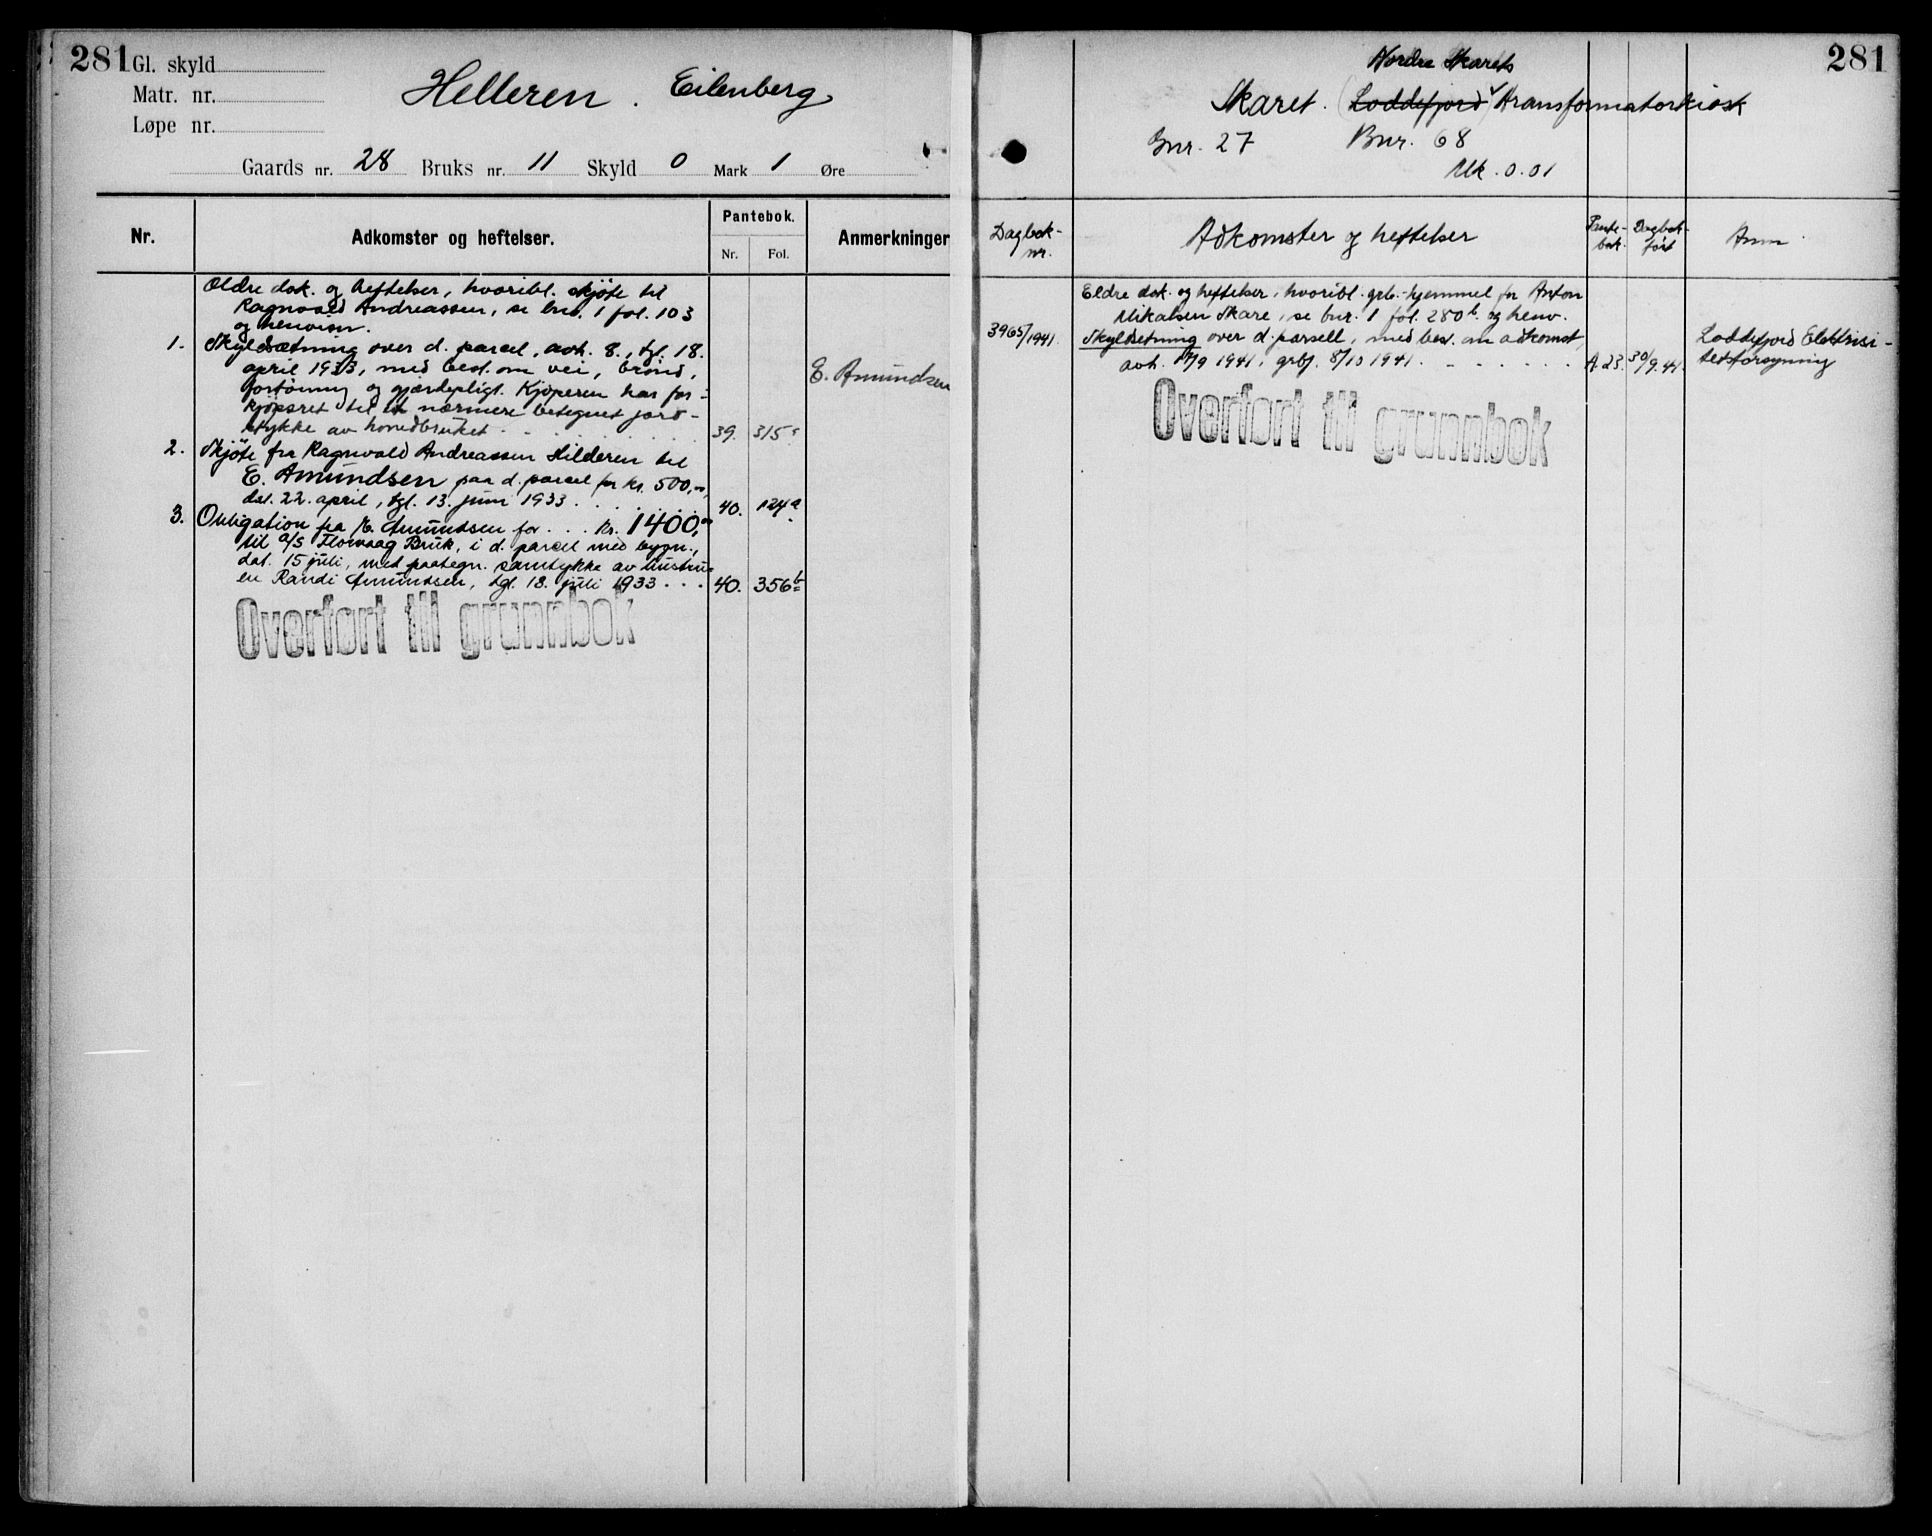 281
Gl. skyld
Matr. nr.
Løpe nr.
Helleren. Eilenberg
Gaards nr. 28 Bruks nr. 11 Skyld 0 Mark 1 Øre
Nr.
Adkomster og heftelser.
Pantebok.
Nr. Fol.
Anmerkninger
Ældre dok. og heftelser, hvoribl. skjøte til
Ragnvald Andreassen, se bno. 1 fol. 103
og henvisn.
1. Skyldsætning over d. parcel, avh. 8., tgl. 18.
april 1933, med best. om vei, brønd,
fortøining og gjærdepligt. Kjøperen har for-
kjøpsret til et nærmere betegnet jord-
stykke av hovedbruket 39. 315a
E. Amundsen
2. Skjøte fra Ragnvald Andreassen Hilderen til
E. Amundsen paa d. parcel for kr. 500,-,
dat. 22. april, tgl. 13. juni 1933 40. 124a
3. Obligation fra E. Amundsen for . . . kr. 1400,-
til A/S Florvaag Bruk, i d. parcel med bygn.,
dat. 15 juli, med paategn. samtykke av hustru-
en Randi Amundsen, tgl. 18. juli 1933 . . . 40. 356b
Overført til grunnbok
281
Nordre Skarets
Skaret. (Loddefjord) transformatorkiosk
Gnr. 27 Bnr. 68
Mk. 0.01
Dagbok-
nr.
Adkomster og heftelser
Pante-
bok.
Dagbok-
ført
Anm
Eldre dok. og heftelser, hvoribl. grb.-hjemmel for Anton
Mikalsen Skare, se bnr. 1 fol. 280b og henv.
3965/1941. Skyldsetning over d. parsell, med best. om adkomst,
avh. /9 1941, grbf. 8/10 1941. A 23. 30/9.41.
Loddefjord Elektrisi-
tetsforsyning
Overført til grunnbok